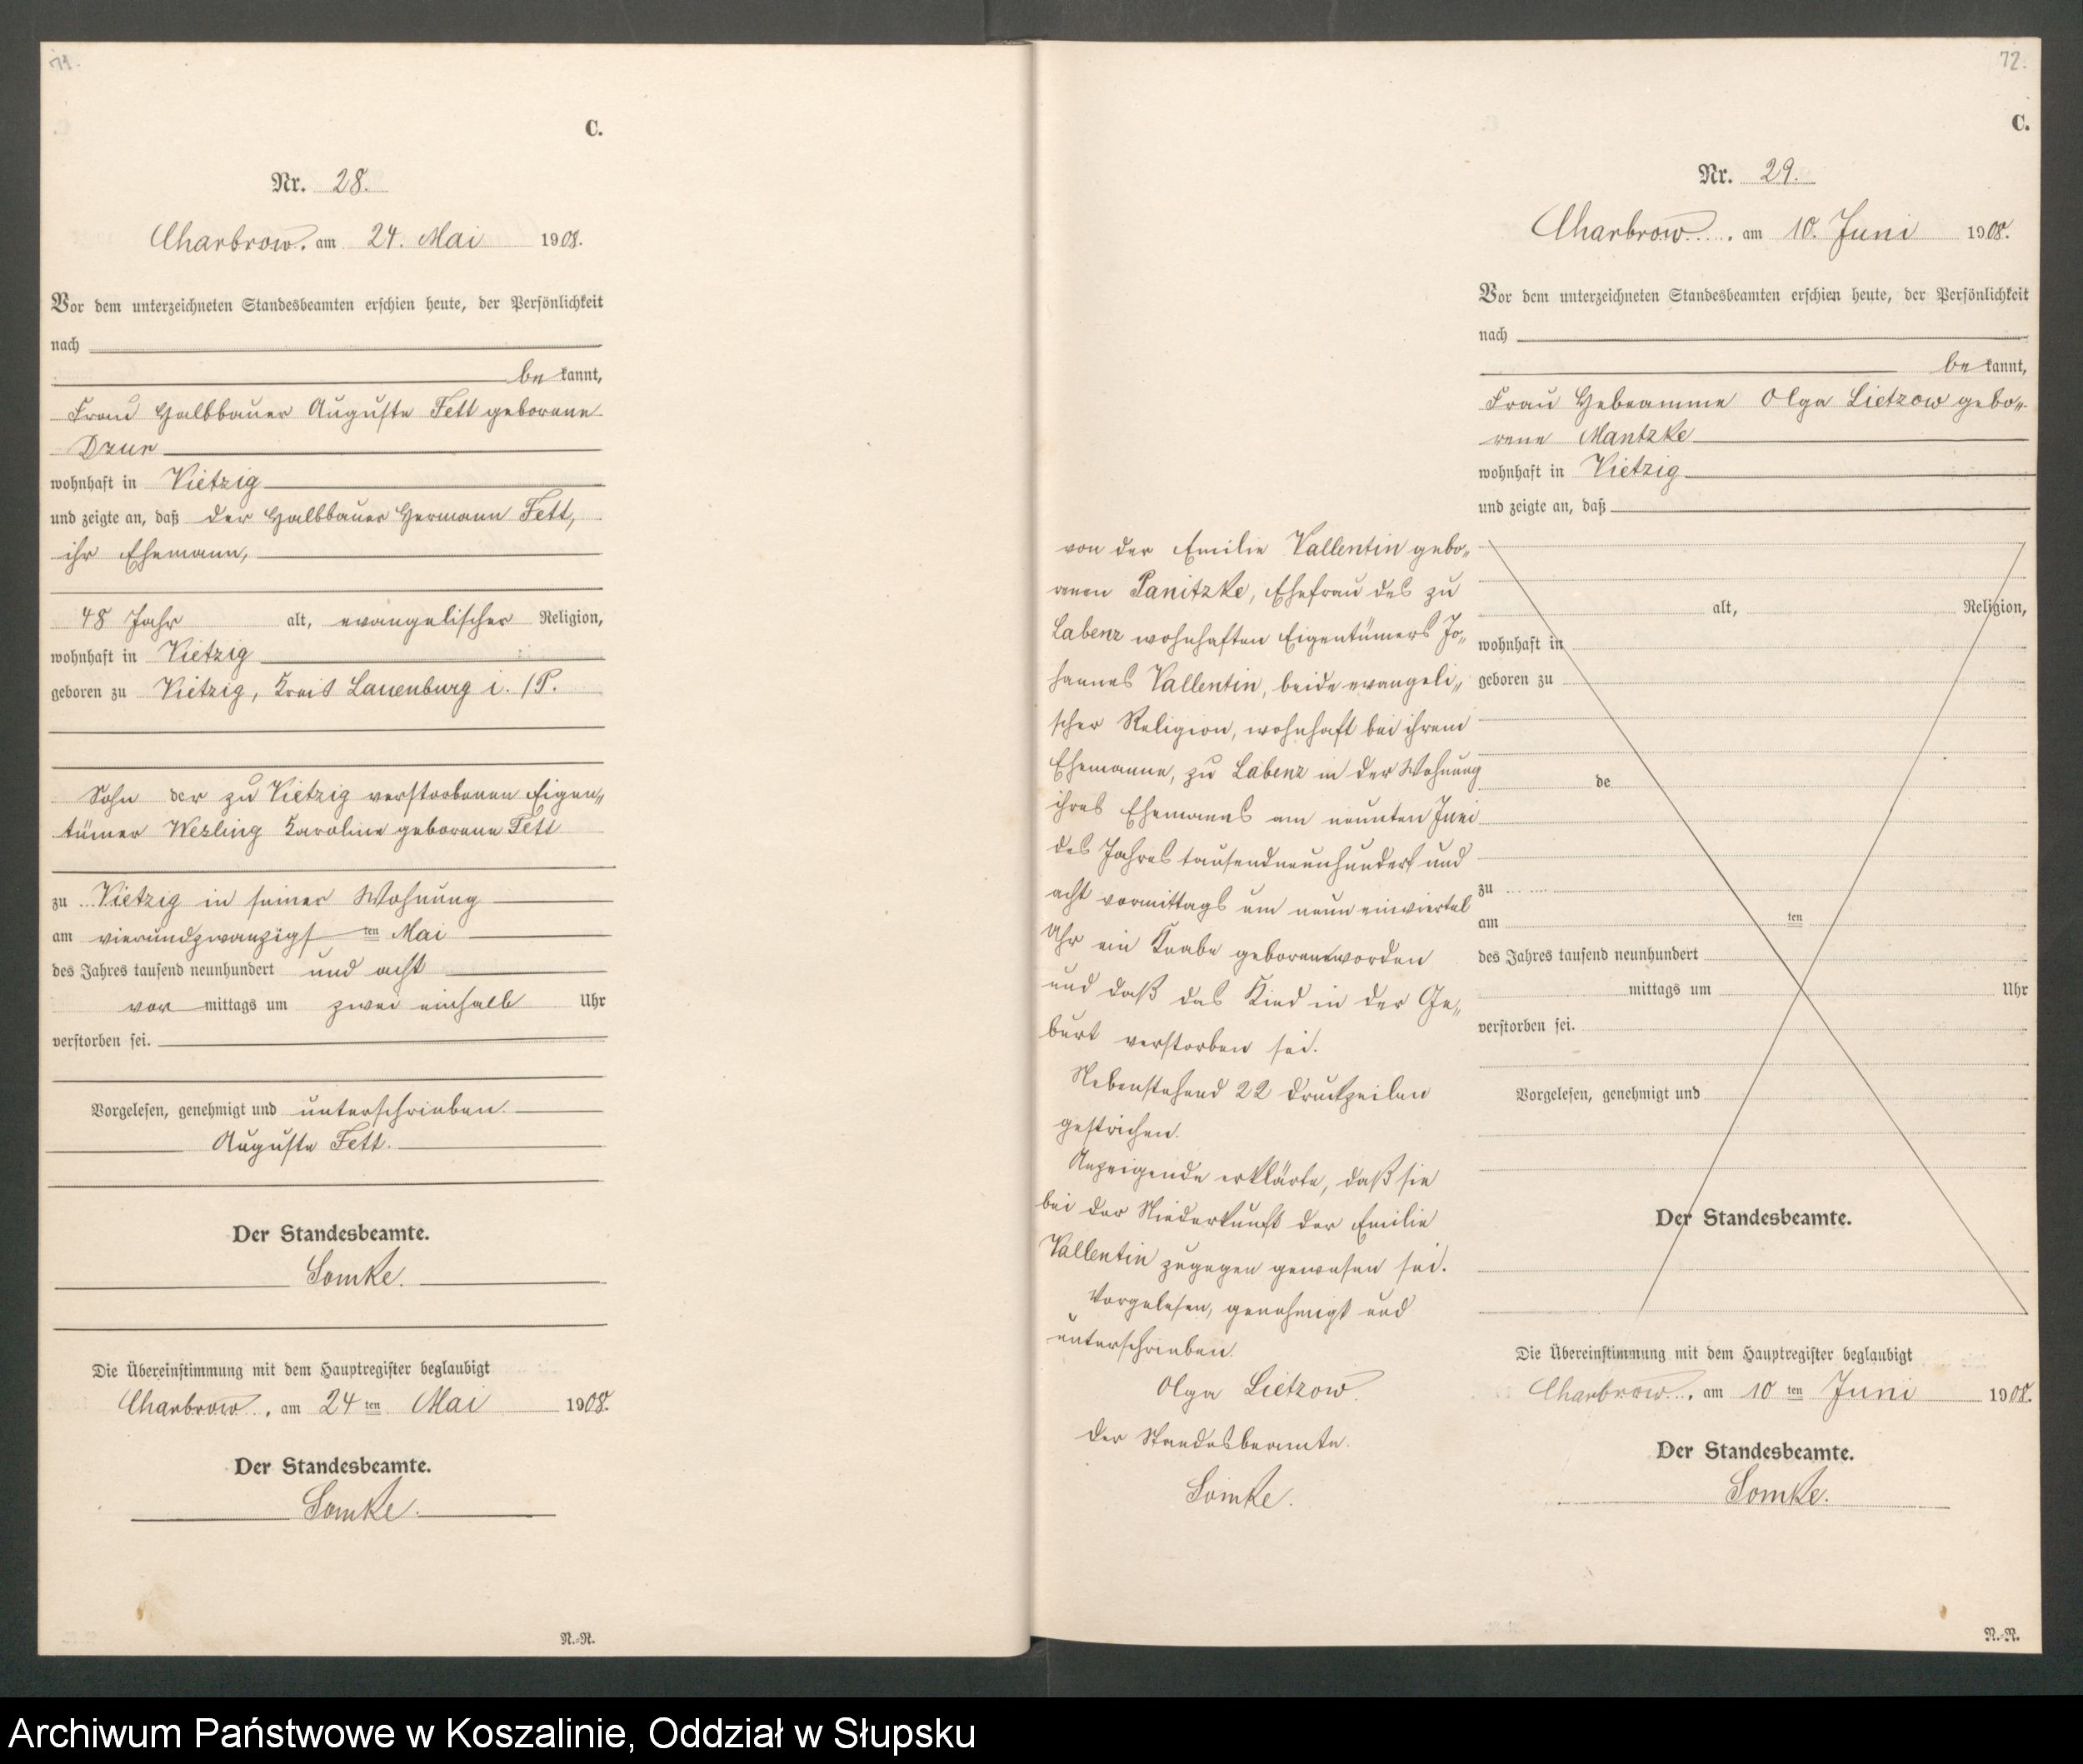 71.
C.
Nr. 28.
Charbrow, am 24. Mai 1908.
Vor dem unterzeichneten Standesbeamten erschien heute, der Persönlichkeit
nach
be kannt,
Frau Halbbauer Auguste Fett geborene
Dzur
wohnhaft in Vietzig
und zeigte an, daß der Halbbauer Hermann Fett,
ihr Ehemann,
48 Jahr alt, evangelischer Religion,
wohnhaft in Vietzig
geboren zu Vietzig, Kreis Lauenburg i. /P.
Sohn der zu Vietzig verstorbenen Eigen„
tümer Wezling Karoline geborene Fett
zu Vietzig in seiner Wohnung
am vierundzwanzigsten Mai
des Jahres tausend neunhundert und acht
vor mittags um zwei einhalb Uhr
verstorben sei.
Vorgelesen, genehmigt und unterschrieben.
Auguste Fett.
Der Standesbeamte.
Somke.
Die Übereinstimmung mit dem Hauptregister beglaubigt
Charbrow, am 24 ten Mai 1908.
Der Standesbeamte.
Somke.
N.-N.
72.
C.
Nr. 29.
Charbrow, am 10. Juni 1908.
Vor dem unterzeichneten Standesbeamten erschien heute, der Persönlichkeit
nach
be kannt,
Frau Hebeamme Olga Lietzow gebo„
rene Mantzke
wohnhaft in Vietzig
und zeigte an, daß
von der Emilie Vallentin gebo„
renen Panitzke, Ehefrau des zu
Labenz wohnhaften Eigentümers Jo„
hannes Vallentin, beide evangeli„
scher Religion, wohnhaft bei ihrem
Ehemanne, zu Labenz in der Wohnung
ihres Ehemanns am neunten Juni
des Jahres tausendneunhundert und
acht vormittags um neun einviertel
Uhr ein Knabe geboren worden
und daß das Kind in der Ge„
burt verstorben sei.
Nebenstehend 22 Druckzeilen
gestrichen.
Anzeigende erklärte, daß sie
bei der Niederkunft der Emilie
Vallentin zugegen gewesen sei.
Vorgelesen, genehmigt und
unterschrieben.
Olga Lietzow.
Der Standesbeamte.
Somke.
alt, Religion,
wohnhaft in
geboren zu
de
zu
am ten
des Jahres tausend neunhundert
mittags um Uhr
verstorben sei.
Vorgelesen, genehmigt und
Der Standesbeamte.
Die Übereinstimmung mit dem Hauptregister beglaubigt
Charbrow, am 10 ten Juni 1908.
Der Standesbeamte.
Somke.
N.-N.
Archiwum Państwowe w Koszalinie, Oddział w Słupsku